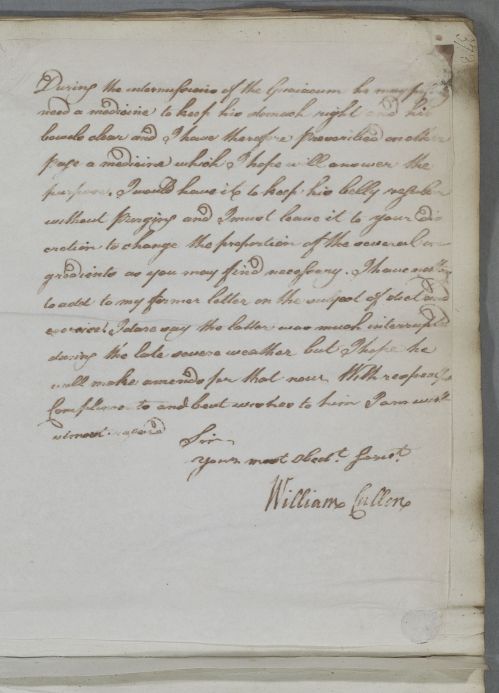 During the intermissions of the Guaiacum he may
need a medicine to keep his stomach right and his
bowels clear and I have therefore prescribed another
page a medicine which I hope will answer the
purpose. I would have it to keep his belly regular
without Purging and I must leave it to your dis
cretion to change the proportion of the several in
gredients as you may find necessary. I have nothing
to add to my former letter on the subject of diet and
exercise. I dare say the latter was much interrupted
during the late severe weather but I hope he
will make amends for that now. With respectful
Compliments and best wishes to him I am with
utmost regard
Sir
Your most Obedt. Servt.
William Cullen